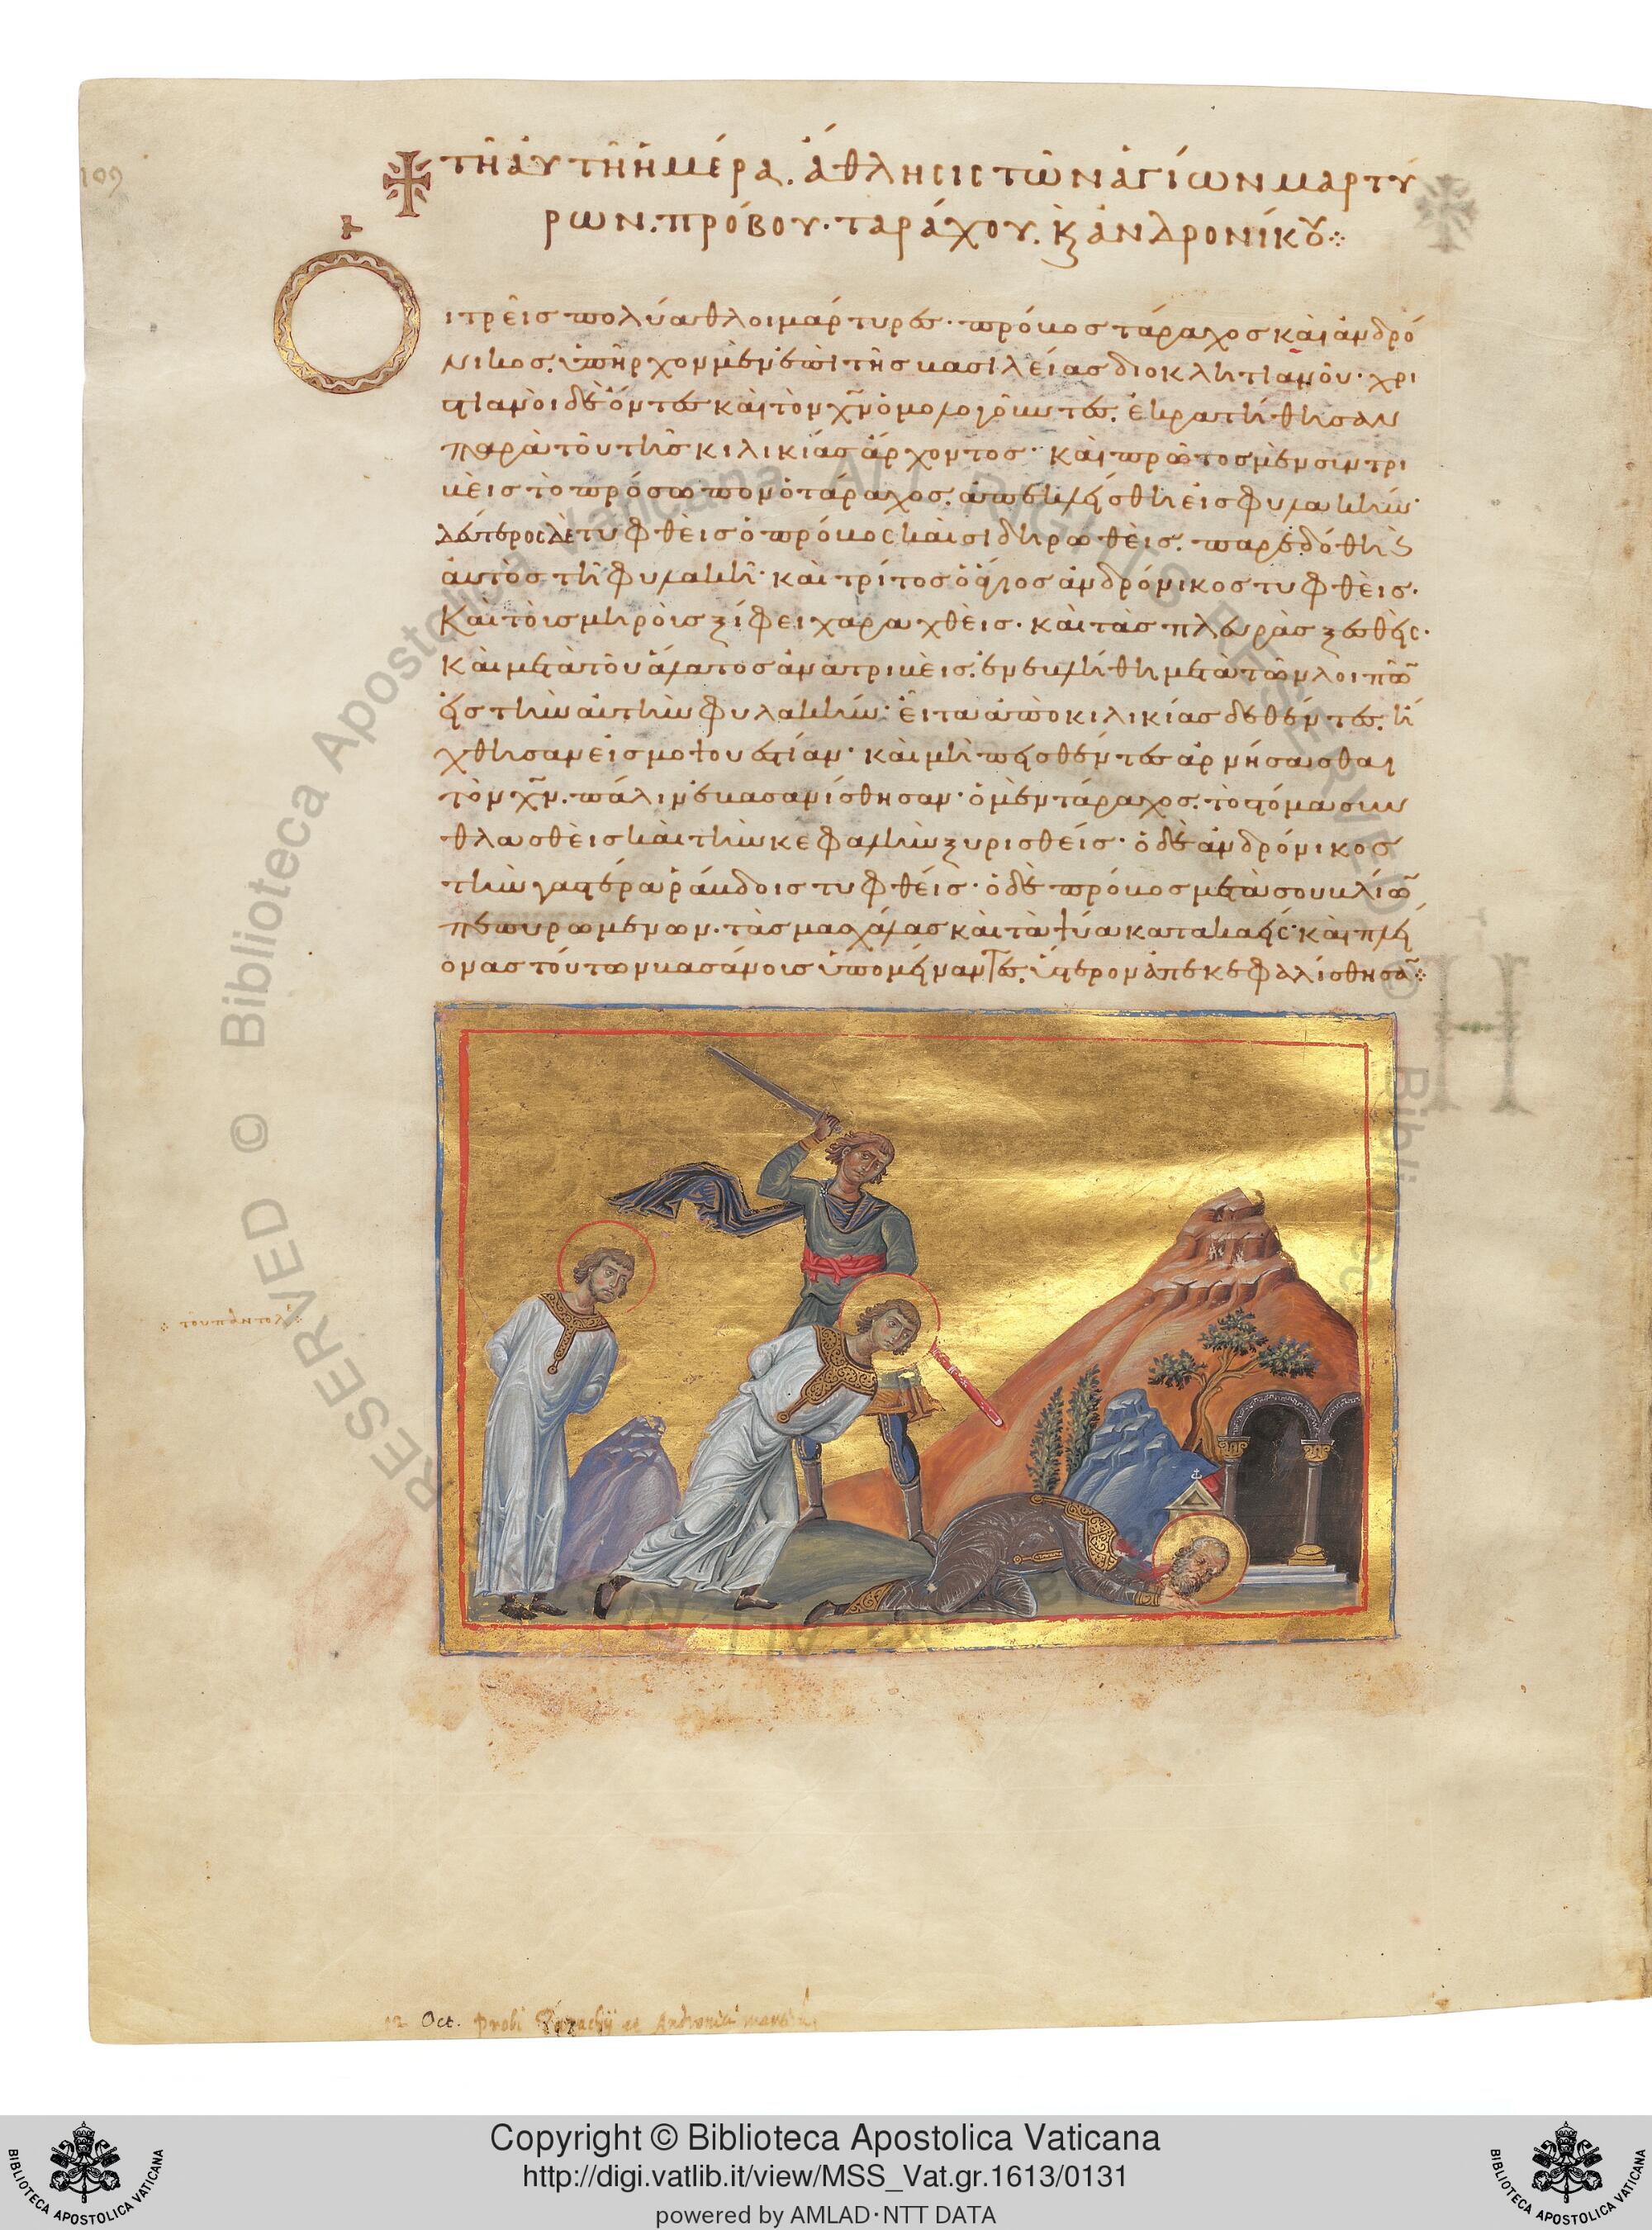 109
τῆ αὐτῆ ἡμέρα. ἄθλησις τῶν ἁγίων μαρτύ
ρων. πρόβου. ταράχου. κ ἀνδρονίκου
Οἱ τρεῖς πολύαθλοι μάρτυρες. πρόβος τάραχος καὶ ἀνδρό
νικος. ὑπῆρχον μὲν ἐπὶ τῆς βασιλείας διοκλητιανοῦ. χρι
στιανοὶ δὲ ὄντες καὶ τὸν χν ὁμολογοῦντες. ἐκρατήθησαν
παρὰ τοῦ τῆς κιλικίας ἄρχοντος. καὶ πρῶτος μὲν συντρι
βεὶς τὸ πρόσωπον ὁ τάραχος. ἀπεκλείσθη εἰς φυλακήν.
δεύτερος δὲ τυφθεὶς ὁ πρόβος καὶ σιδηρωθεὶς. παρεδόθη κ
αὐτὸς τῆ φυλακῆ. καὶ τρίτος ὁ ἅγιος ἀνδρόνικος τυφθεὶς.
καὶ τοῖς μηροῖς ξίφει χαραχθεὶς. καὶ τὰς πλευρὰς ξεσθείς.
καὶ μετὰ τοῦ ἅλατος ἀνατριβεὶς. ἐνεβλήθη μετὰ τῶν λοιπῶν
εἰς τὴν αὐτὴν φυλακήν. εἶτα ἀπὸ κιλικίας δεθέντες. ἤ
χθησαν εἰς μοψουεστίαν. καὶ μὴ πεισθέντες ἀρνήσασθαι
τὸν χν. πάλιν ἐβασανίσθησαν. ὁ μὲν τάραχος. τὸ στόμα συν
θλασθεὶς καὶ τὴν κεφαλὴν ξυρισθείς. ὁ δὲ ἀνδρόνικος
τὴν γαστέρα ῥάβδοις τυφθείς. ὁ δὲ πρόβος μετὰ σουβλίων
πεπυρωμένων. τὰς μασχάλας καὶ τὰ ψύα κατακαείς. καὶ πλεί
ονας τούτων βασάνοις ὑπομείναντες. ὕστερον ἀπεκεφαλίσθησαν
12 Oct. Probi Tarachij et Andronici mart
Copyright © Biblioteca Apostolica Vaticana
http://digi.vatlib.it/view/MSS_Vat.gr.1613/0131
powered by AMLAD·NTT DATA
BIBLIOTECA APOSTOLICA VATICANA
BIBLIOTECA APOSTOLICA VATICANA